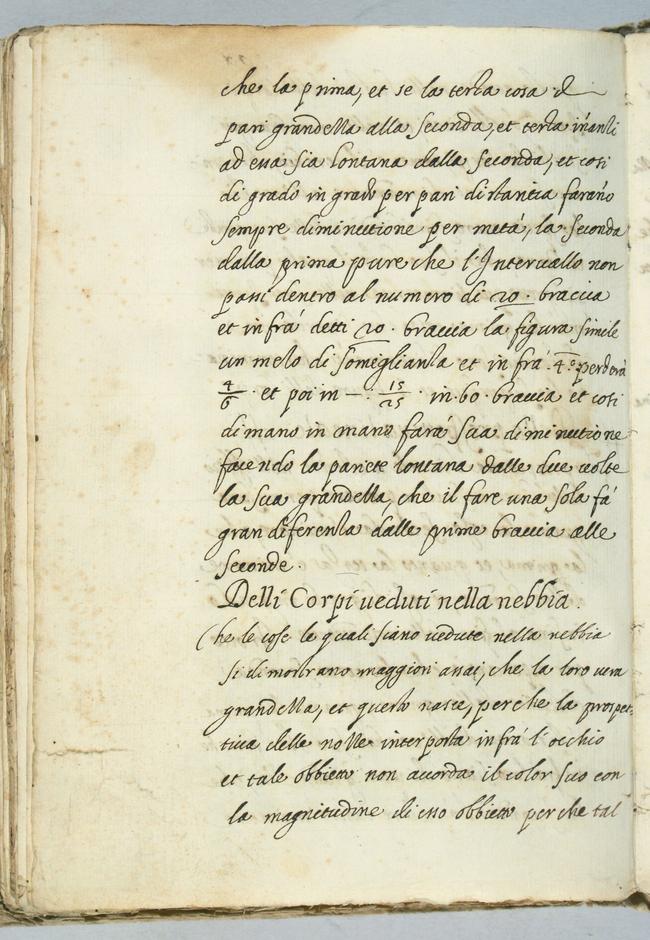 che la prima, et se la terza cosa è
pari grandezza alla seconda, et terza inanzi
ad essa sia lontana dalla seconda, et cosi
di grado in grado per pari distantia farano
sempre diminutione per metà, la seconda
dalla prima pure che l'Intervallo non
passi dentro al numero di 20. braccia
et infrà detti 20. braccia la figura simile
un melo di someglianza et in frà .4.° perderà
4/6 . et poi in — . 15/25 . in .60. braccia et cosi
di mano in mano farà sua diminutione
facendo la pariete lontana dalle due volte
la sua grandezza, che il fare una sola fà
gran diferenza dalle prime braccia alle
seconde.
Delli Corpi veduti nella nebbia.
Che le cose le quali siano vedute nella nebbia
si dimostrano maggiori assai, che la loro vera
grandezza, et questo nasce, perche la prospet:
tiva delle interposta infrà l'occhio
et tale obbietto non acorda il color suo con
la magnitudine di esso obbietto perche tal